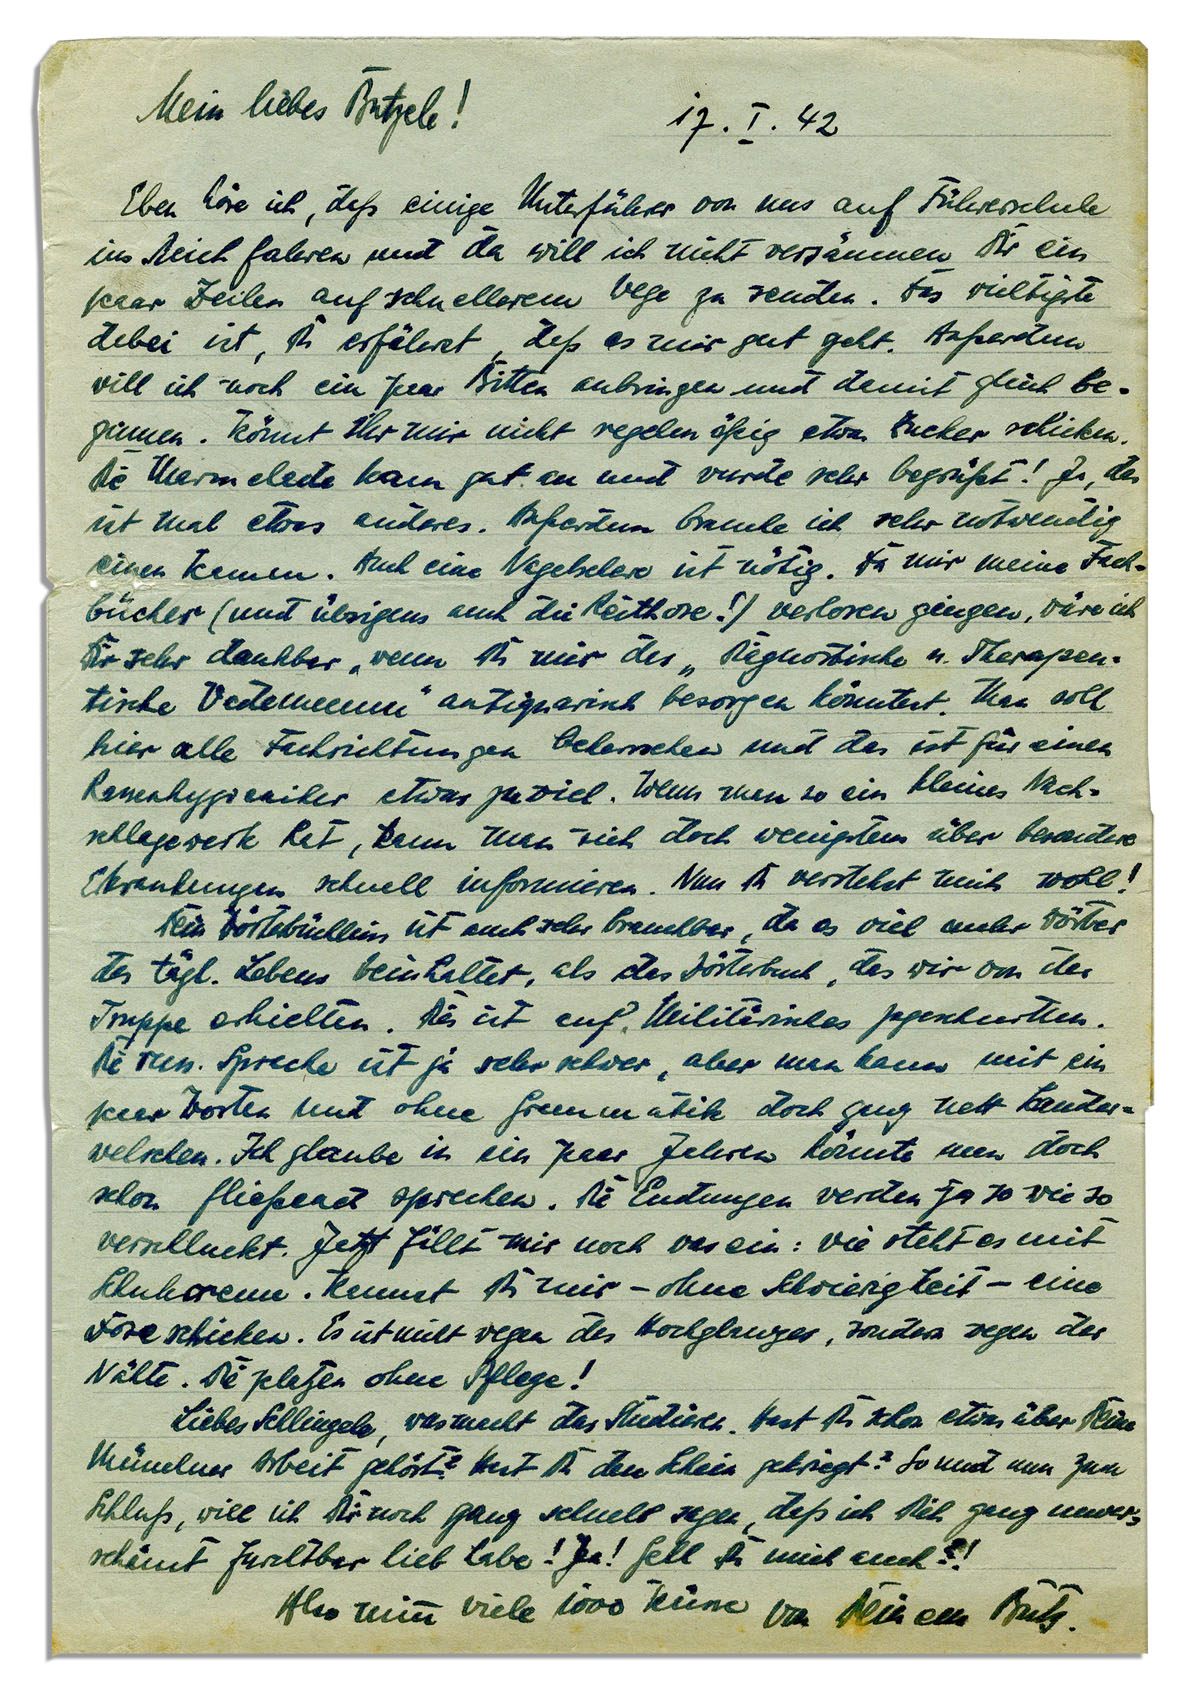 Mein liebes Butzele!
17. I. 42
Eben höre ich, daß einige Unterführer von uns auf Führerschule
ins Reich fahren und da will ich nicht versäumen Dir ein
paar Zeilen auf schnellerem Wege zu senden. Das wichtigste
dabei ist, Du erfährst, daß es mir gut geht. Außerdem
will ich noch ein paar Bitten anbringen und damit gleich be-
ginnen. Könnt Ihr mir nicht regelmäßig etwas Zucker schicken.
Die Marmelade kam gut an und wurde sehr begrüßt! Ja, das
ist mal etwas anderes. Außerdem brauche ich sehr notwendig
einen Kamm. Auch eine Nagelschere ist nötig. Da mir meine Fach-
bücher (und übrigens auch die Reithose!) verloren gingen, wäre ich
Dir sehr dankbar, wenn Du mir das „Diagnostische u. Therapeu-
tische Vademecum" antiquarisch besorgen könntest. Man soll
hier alle Fachrichtungen beherrschen und das ist für einen
Rassenhygieniker etwas zuviel. Wenn man so ein kleines Nach-
schlagewerk hat, kann man sich doch wenigstens über besondere
Erkrankungen schnell informieren. Nun Du verstehst mich wohl!
Dein Wörterbüchlein ist auch sehr brauchbar, da es viel mehr Wörter
des tägl. Lebens beinhaltet, als das Wörterbuch, das wir von der
Truppe erhielten. Das ist auf Militärisches zugeschnitten.
Die russ. Sprache ist ja sehr schwer, aber man kann mit ein
paar Worten und ohne Grammatik doch ganz nett kauder-
welschen. Ich glaube in ein paar Jahren könnte man doch
schon fließend sprechen. Die Endungen werden ja so wie so
verschluckt. Jetzt fällt mir noch was ein: wie steht es mit
Schuhcreme. Kannst Du mir – ohne Schwierigkeit – eine
Dose schicken. Es ist nicht wegen des Hochglanzes, sondern wegen der
Nähte. Die platzen ohne Pflege!
Liebes Schlingele, was macht das Studieren. Hast Du schon etwas über Deine
Münchner Arbeit gehört? Hast Du den Schein gekriegt? So und nun zum
Schluß, will ich Dir noch ganz schnell sagen, daß ich Dich ganz unver-
schämt furchtbar lieb habe! Ja! Gell Du mich auch?!
Also nun viele 1000 Küsse von Deinem Butz.